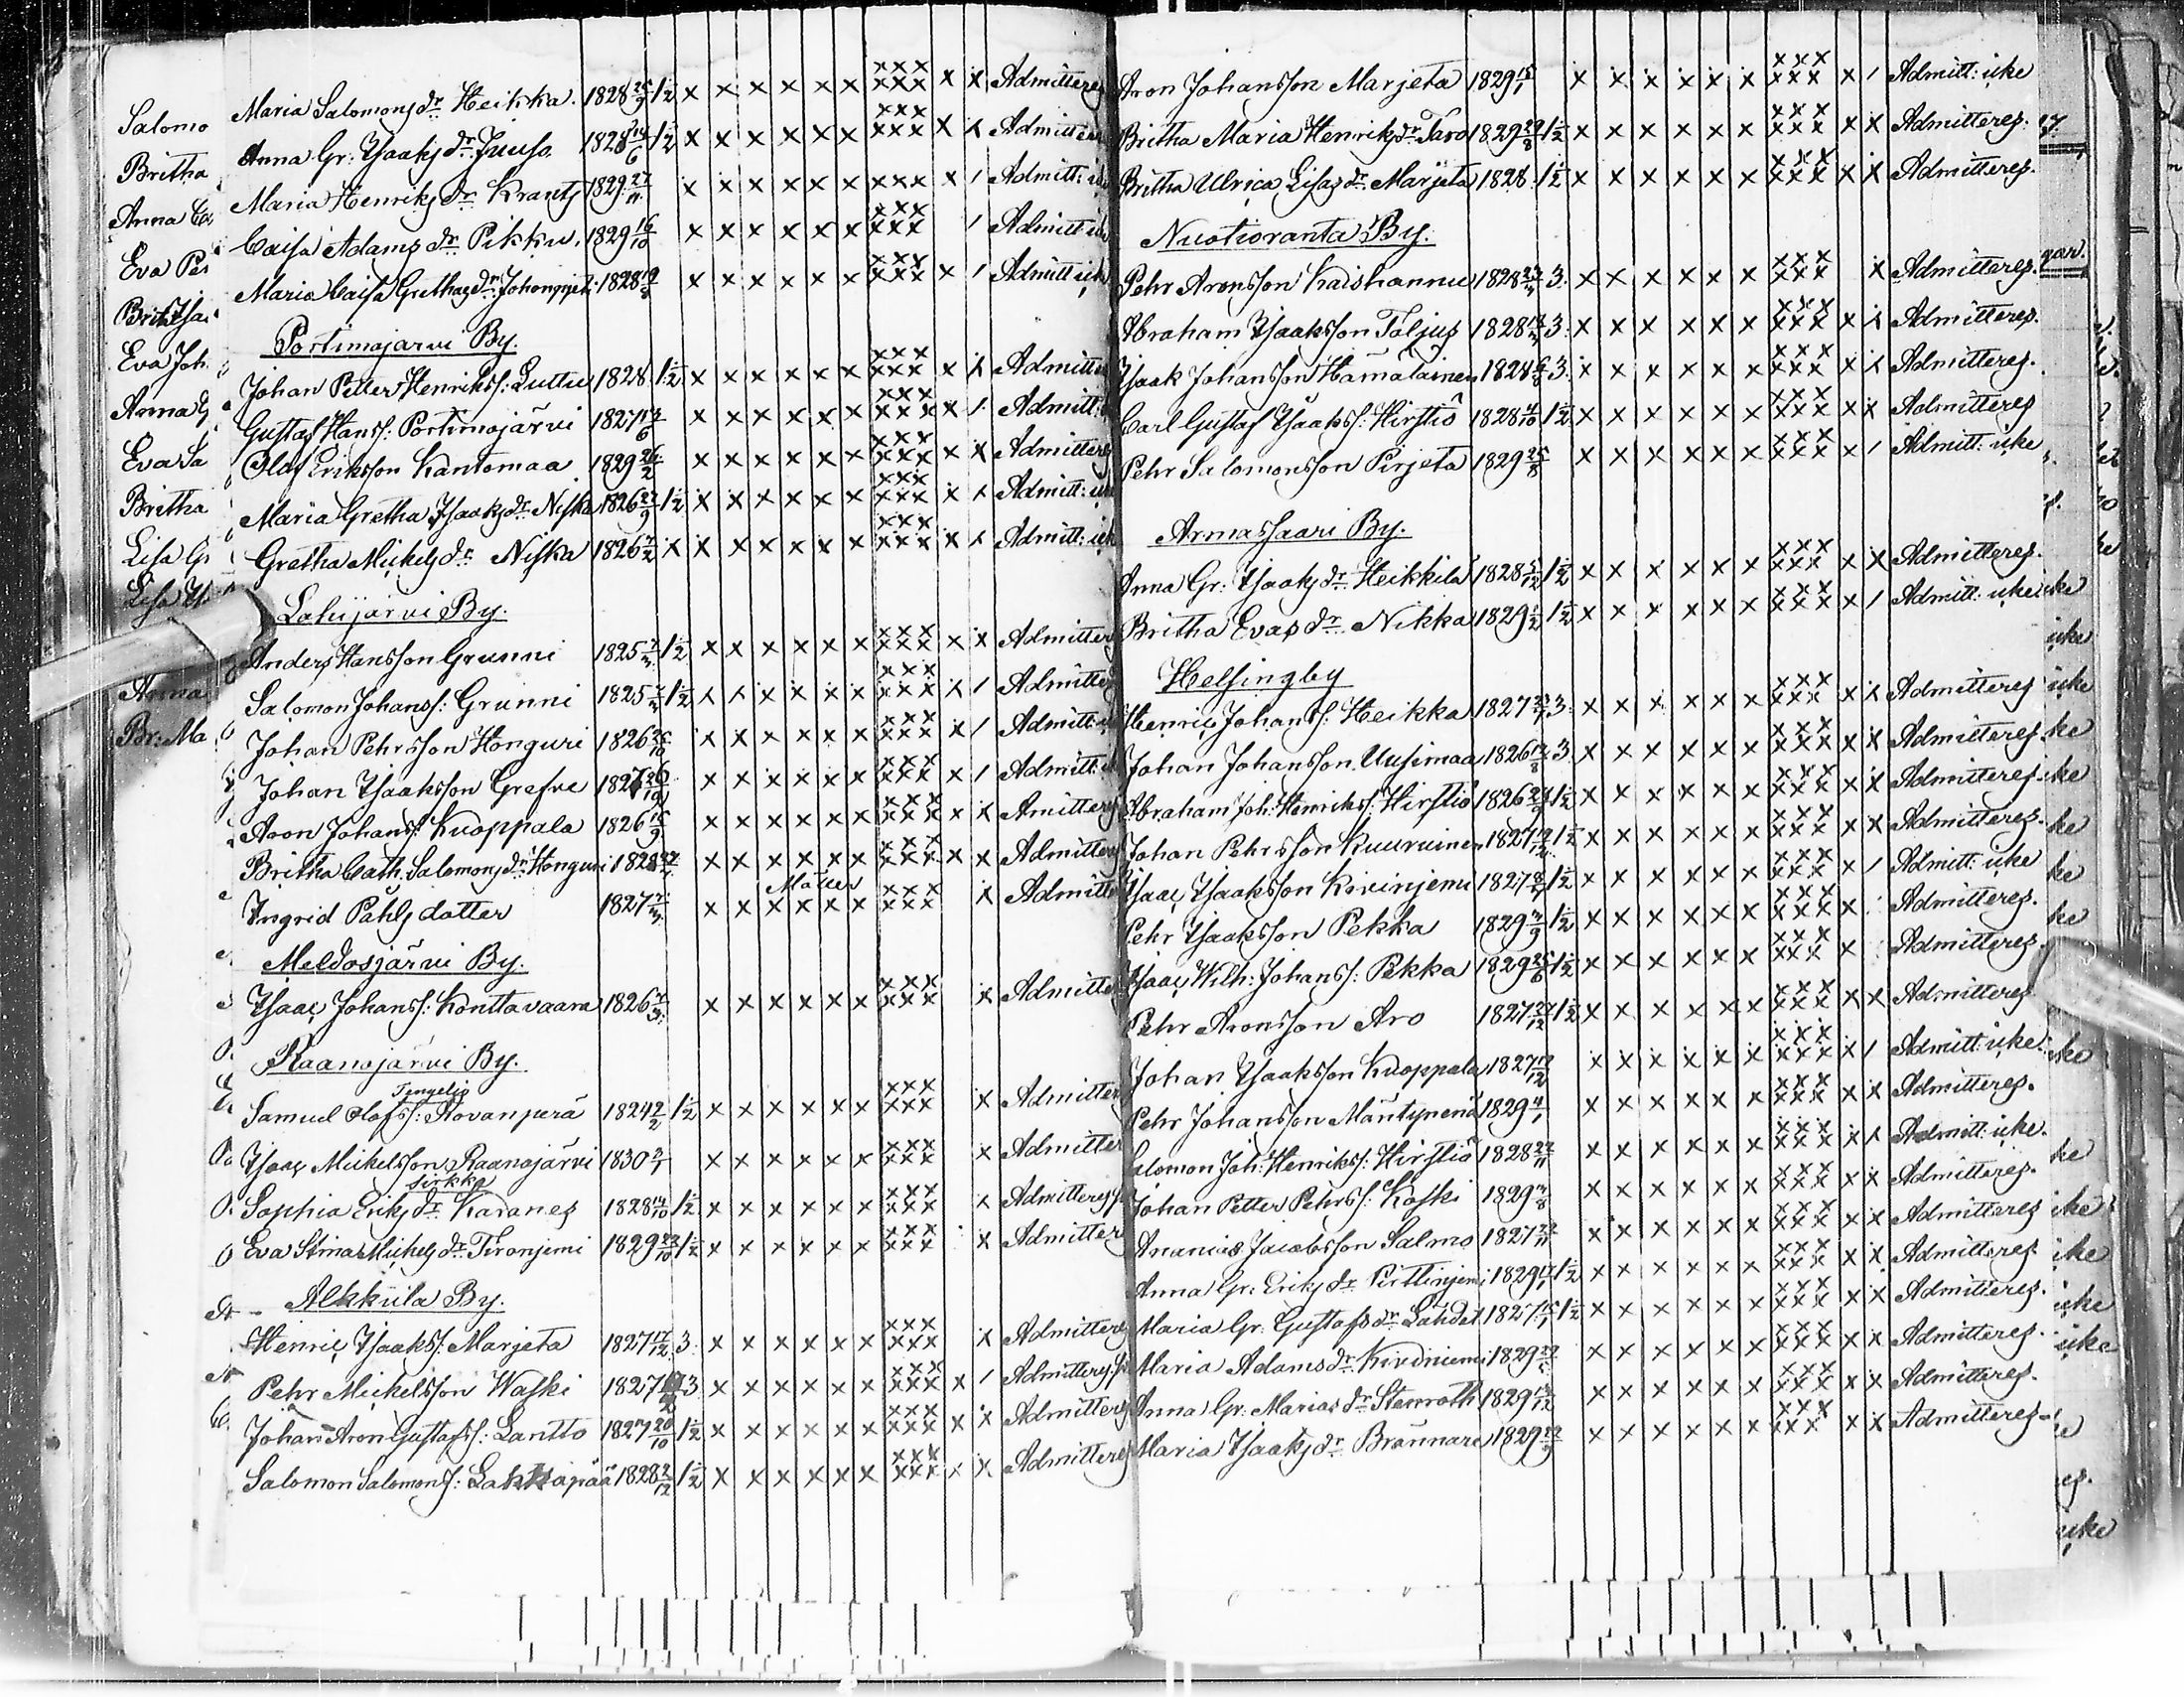 Maria Salomonsdr. Heikka. 1828 25/9 1/2 x x x x x x xxx xxx x x Admitteres
Anna Gr: Isaaksdr. Juuso. 1828 14/6 1/2 x x x x x x xxx xxx x x Admitteres
Maria Henriksdr. Krantz 1829 27/11 x x x x x x xxx x / Admitt: ick
Caisa Adamsdr. Pikku. 1829 16/10 x x x x x x xxx xxx / Admitt ick
Maria Caisa Grethasdr. 1828 x x x x x x xxx xxx x / Admitt ick
Portimojarvi By.
Johan Petter Henrikss: Luttu 1828 1/2 x x x x x x xxx xxx x x Admitte
Gustaf Hanss: Portimojärvi 1827 17/6 x x x x x x xxx xxx x / Admitt:
Olof Eriksson Kantomaa 1829 26/2 x x x x x x xxx xxx x x Admitteres
Maria Gretha Isaaksdr. Niska 1826 27/9 1/2 x x x x x x xxx xxx x x Admitt: ick
Gretha Mickelsdr. Niska 1826 7/2 x x x x x x x xxx xxx x x Admitt: ick
Lahijärvi By.
Anders Hansson Grunni 1825 1/2 x x x x x x xxx xxx x x Admitter
Salomon Johanss: Grunni 1825 1/2 x x x x x x xxx xxx x / Admitte
Johan Pehrsson Honguri 1826 26/10 x x x x x x xxx xxx x / Admitt:
Johan Isaaksson Grefve 1827 26/10 x x x x x x xxx xxx x / Admitt:
Aron Johanss: Kuoppala 1826 15/9 x x x x x x xxx xxx x x Amitteres
Britha Cath. Salomonsdr. Honguri 1828 x x x x x x xxx xxx x x Admitteres
Ingrid Påhls dotter 1827 x x x x x x xxx xxx x Admitte
Meldosjärvi By.
Isaac Johanss: Konttavaara 1826 x x x x x x xxx xxx x Admitte
Raanojärvi By.
Tengelio
Samuel Olofss: Rovanperä 1824 2/2 1/2 x x x x x x xxx xxx x Admitter
Isaac Mickelsson Raanojärvi 1830 x x x x x x xxx xxx x Admitter
Sirkka
Sophia Eriksdr. Karanes 1828 14/10 1/2 x x x x x x xxx xxx x Admitteres
Eva Stina Mickelsdr. Tironjemi 1829 23/10 1/2 x x x x x x xxx xxx x Admitter
Alkkula By.
Henric Isaakss: Marjeta 1827 17/12 3. x x x x x x xxx xxx x Admitteres
Pehr Mickelsson Waski 1827 3 x x x x x x xxx xxx x / Admitteres
Johan Aron Gustafss: Lantto 1827 20/10 1/2 x x x x x x xxx xxx x x Admitteres
Salomon Salomonss: Lakkapää 1828 2/12 1/2 x x x x x x xxx xxx x x Admitteres
Aron Johansson Marjeta 1829 15/1 x x x x x x xxx xxx x / Admitt: icke
Britha Maria Henriksdr. Taro 1829 29/8 1/2 x x x x x x xxx xxx x x Admitteres.
Britha Ulrica Lisasdr. Marjeta 1828 1/2 x x x x x x xxx xxx x x Admitteres.
Nuotioranta By.
Pehr Aronsson Kaishannu 1828 3. x x x x x x xxx xxx x Admitteres.
Abraham Isaaksson Taljus 1828 3. x x x x x x xxx xxx x x Admitteres.
Isaak Johansson Hämäläinen 1828 3. x x x x x x xxx xxx x x Admitteres.
Carl Gustaf Isaakss: Hirstiö 1828 1/2 x x x x x x xxx xxx x x Admitteres
Pehr Salomonsson Pirjeta 1829 25/8 x x x x x x xxx xxx x / Admitt: icke
Armassaari By.
Anna Gr: Isaaksdr. Heikkilä 1828 5/12 1/2 x x x x x x xxx xxx x x Admitteres.
Britha Evasdr. Nikka 1829 1/2 1/2 x x x x x x xxx xxx x / Admitt: icke
Helsingby
Henric Johanss: Heikka 1827 3. x x x x x x xxx xxx x x Admitteres
Johan Johansson Uusimaa 1826 12/8 3. x x x x x x xxx xxx x x Admitteres.
Abraham Joh: Henrikss: Hirstiö 1826 1/2 x x x x x x xxx xxx x x Admitteres
Johan Pehrsson Kuuruinen 1827 1/2 x x x x x x xxx xxx x x Admitteres.
Isaac Isaaksson Kivinjemi 1827 1/2 x x x x x x xxx xxx x / Admitt: icke
Pehr Isaaksson Pekka 1829 1/2 x x x x x x xxx xxx x Admitteres.
Isaac Wilh: Johanss: Pekka 1829 25/6 1/2 x x x x x x xxx xxx x Admitteres.
Pehr Aronsson Aro 1827 27/12 1/2 x x x x x x xxx xxx x x Admitteres
Johan Isaaksson Kuoppala 1827 19/12 x x x x x x xxx xxx x / Admitt icke.
Pehr Johansson Mäntynenä 1829 x x x x x x xxx xxx x x Admitteres.
Salomon Joh: Henrikss: Hirstiö 1828 27/11 x x x x x x xxx xxx x x Admitt: icke.
Johan Petter Pehrss: Koski 1829 x x x x x x xxx xxx x x Admitteres.
Ananias Jacobsson Salmo 1827 x x x x x x xxx xxx x x Admitteres
Anna Gr: Eriksdr. Pirttinjemi 1829 1/2 x x x x x x xxx xxx x x Admitteres
Maria Gr: Gustafsdr. Lähdet 1827 1/2 x x x x x x xxx xxx x x Admitteres.
Maria Adamsdr. Kiviniemi 1829 x x x x x x xxx xxx x x Admitteres.
Anna Gr: Mariasdr. Stenroth 1829 x x x x x x xxx xxx x x Admitteres.
Maria Isaaksdr. Brännare 1829 x x x x x x xxx xxx x x Admitteres